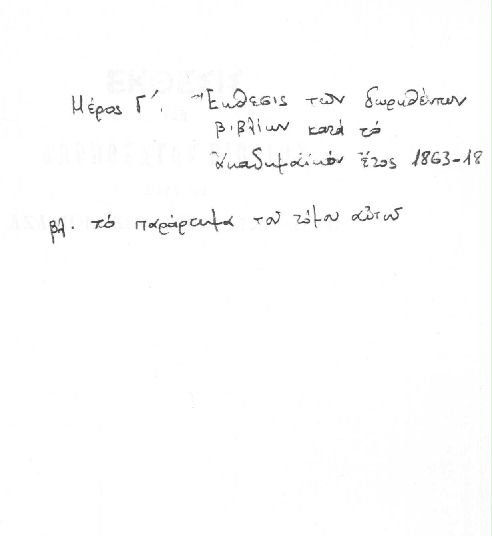 Μέρος Γ΄. Ἔκθεσις τῶν δωρηθέντων
βιβλίων κατὰ τό
Ἀκαδημαϊκόν ἔτος 1863-18
βλ. τό παράρτημα τοῦ τόμου αὐτοῦ